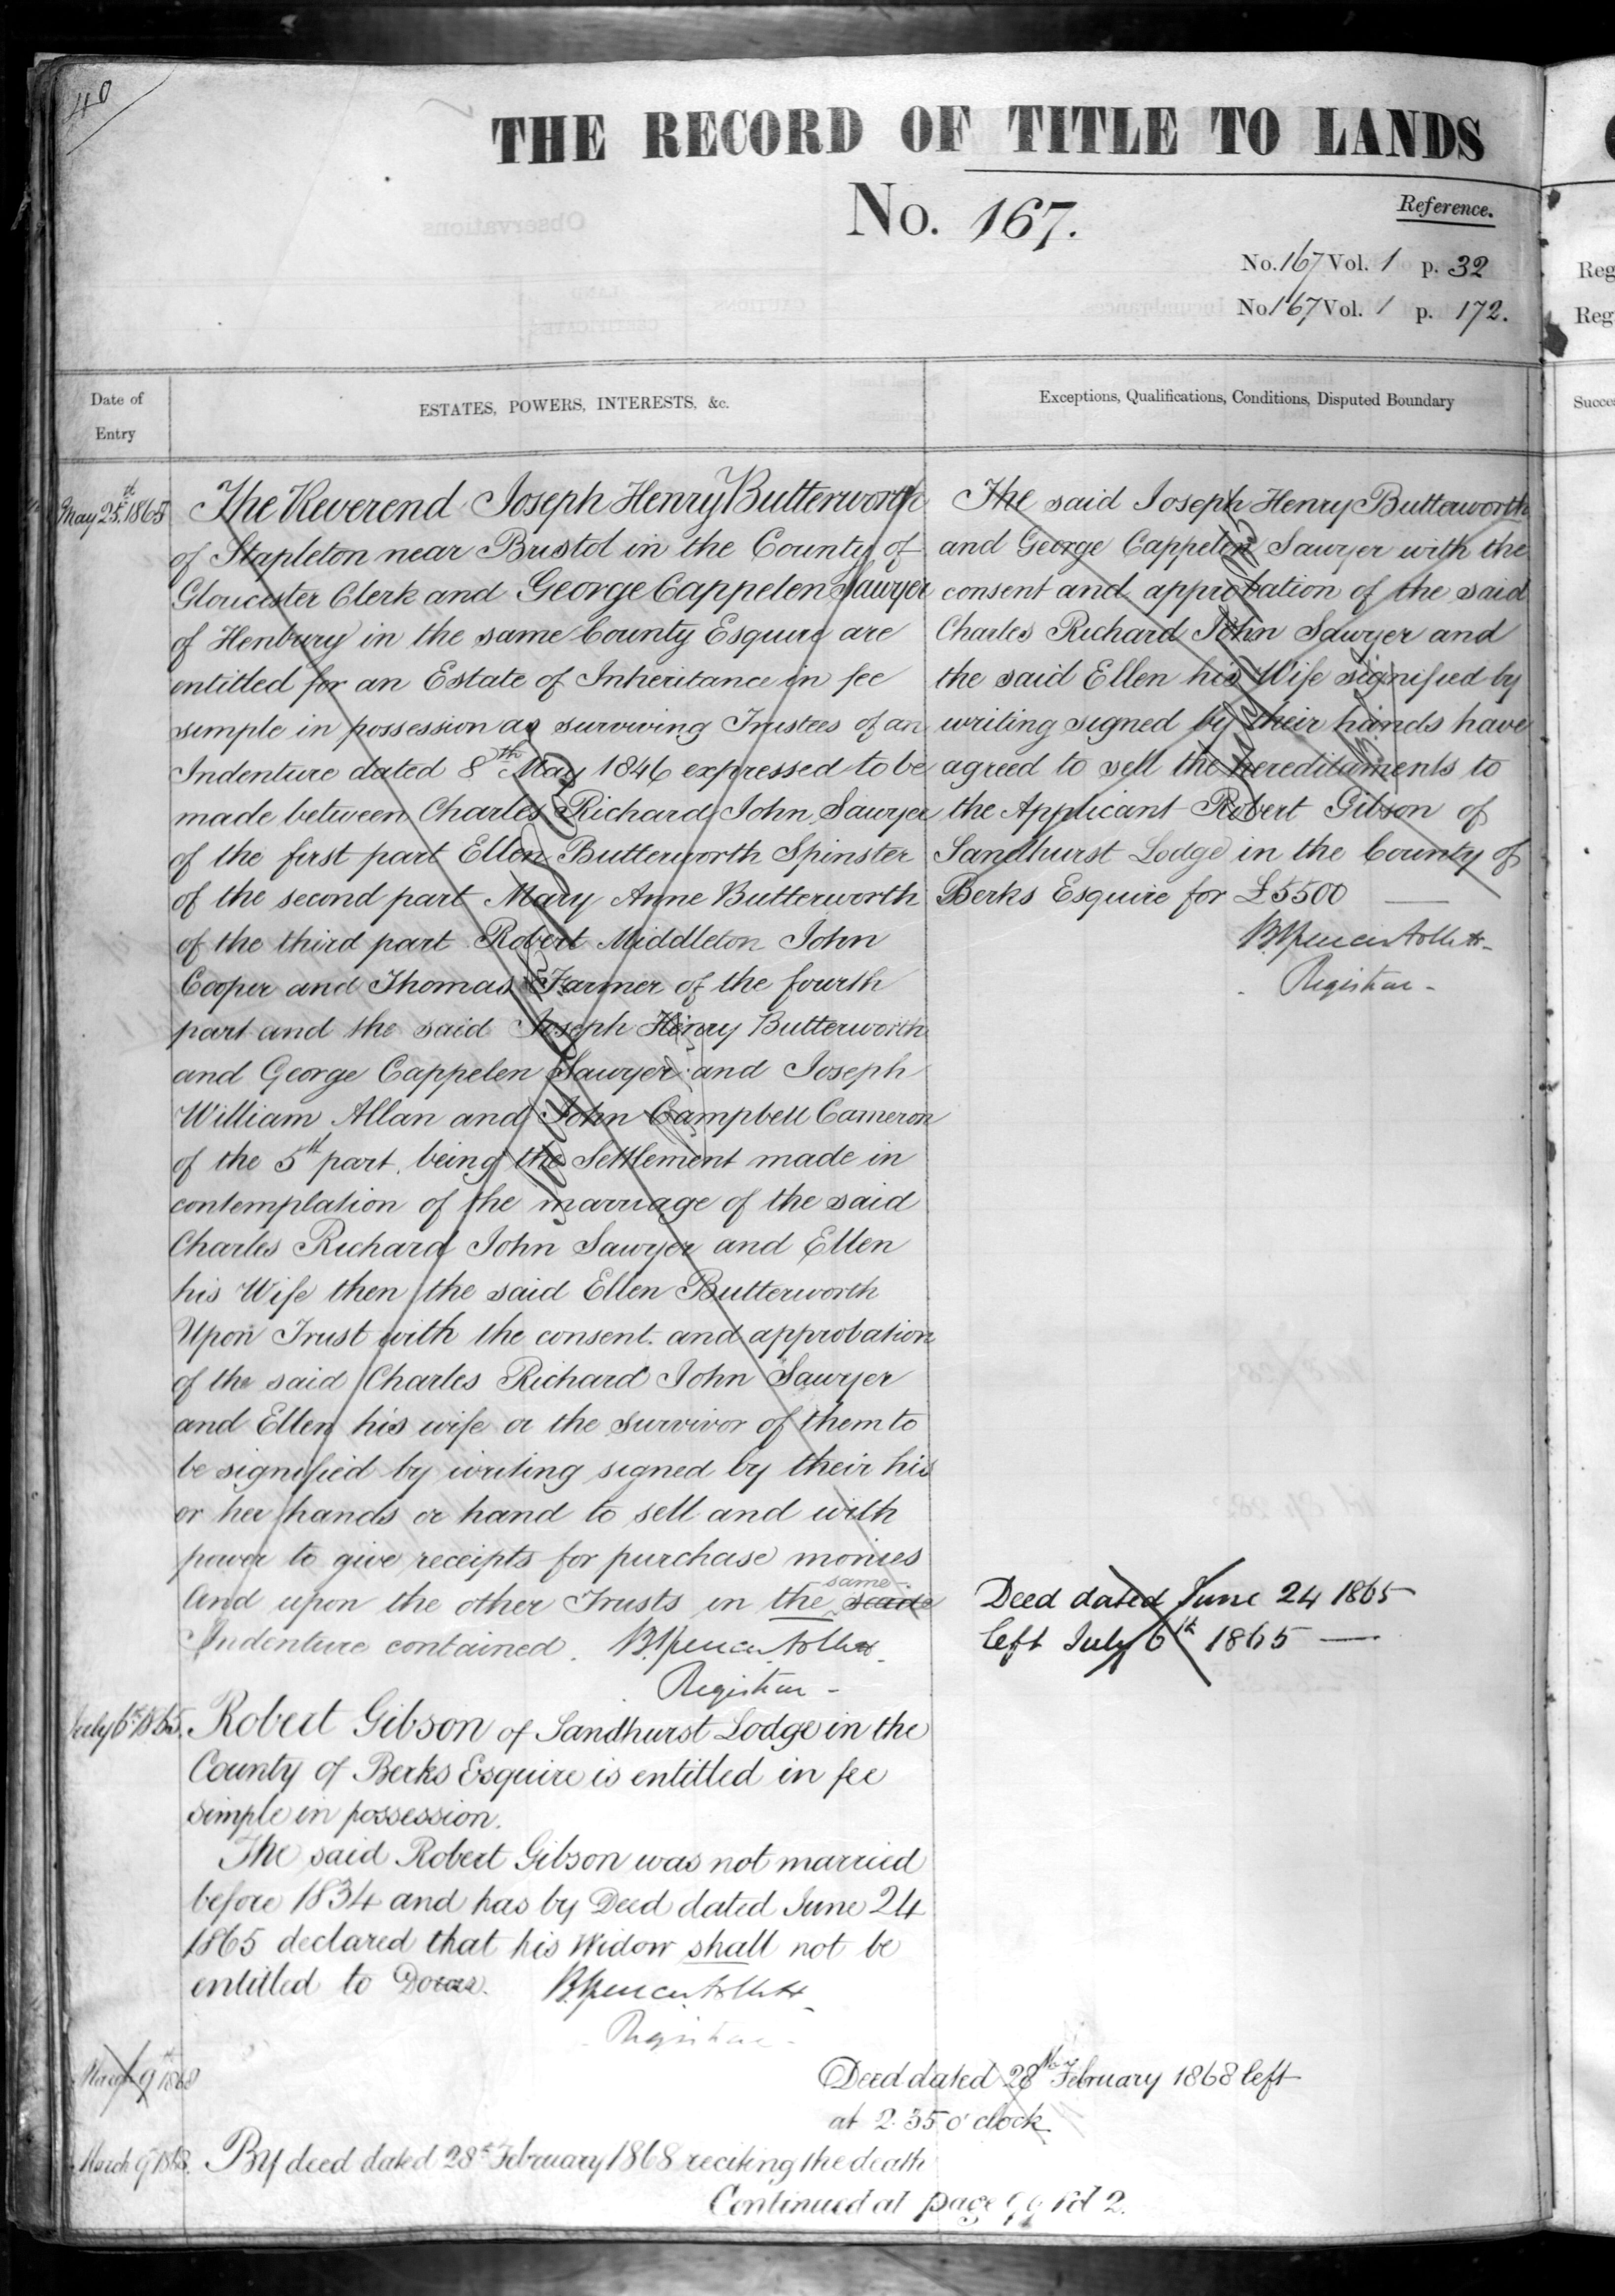 40
THE RECORD OF TITLE TO LANDS
No. 167.
Reference.
No. 167 Vol. 1 p. 32
No 167 Vol. 1 p. 172.
Reg
Reg
Date of
Entry
ESTATES, POWERS, INTERESTS, &c.
Exceptions, Qualifications, Conditions, Disputed Boundary
Succes
May 25th 1865
The Reverend Joseph Henry Butterworth
of Stapleton near Bristol in the County of
Gloucester Clerk and George Cappelen Sawyer
of Henbury in the same County Esquire are
entitled for an Estate of Inheritance in fee
simple in possession as surviving Trustees of an
Indenture dated 8th May 1846 expressed to be
made between Charles Richard John Sawyer
of the first part Ellen Butterworth Spinster
of the second part Mary Anne Butterworth
of the third part Robert Middleton John
Cooper and Thomas Farmer of the fourth
part and the said Joseph Henry Butterworth
and George Cappelen Sawyer and Joseph
William Allan and John Campbell Cameron
of the 5th part, being the Settlement made in
contemplation of the marriage of the said
Charles Richard John Sawyer and Ellen
his Wife then the said Ellen Butterworth
Upon Trust with the consent and approbation
of the said Charles Richard John Sawyer
and Ellen his wife or the survivor of them to
be signified by writing signed by their his
or her hands or hand to sell and with
power to give receipts for purchase monies
And upon the other Trusts in the same
Indenture contained.
Registrar
The said Joseph Henry Butterworth
and George Cappelen Sawyer with the
consent and approbation of the said
Charles Richard John Sawyer and
the said Ellen his Wife signified by
writing signed by their hands have
agreed to sell the hereditaments to
the Applicant Robert Gibson of
Sandhurst Lodge in the County of
Berks Esquire for £5500
Registrar
Deed dated June 24 1865
left July 6th 1865
July 6th 1865.
Robert Gibson of Sandhurst Lodge in the
County of Berks Esquire is entitled in fee
simple in possession.
The said Robert Gibson was not married
before 1834 and has by Deed dated June 24
1865 declared that his Widow shall not be
entitled to Dower.
Registrar
March 9th 1868
Deed dated 28th February 1868 left
at 2.35 o'clock
March 9 1868.
By deed dated 28th February 1868 reciting the death
Continued at page Vol 2.